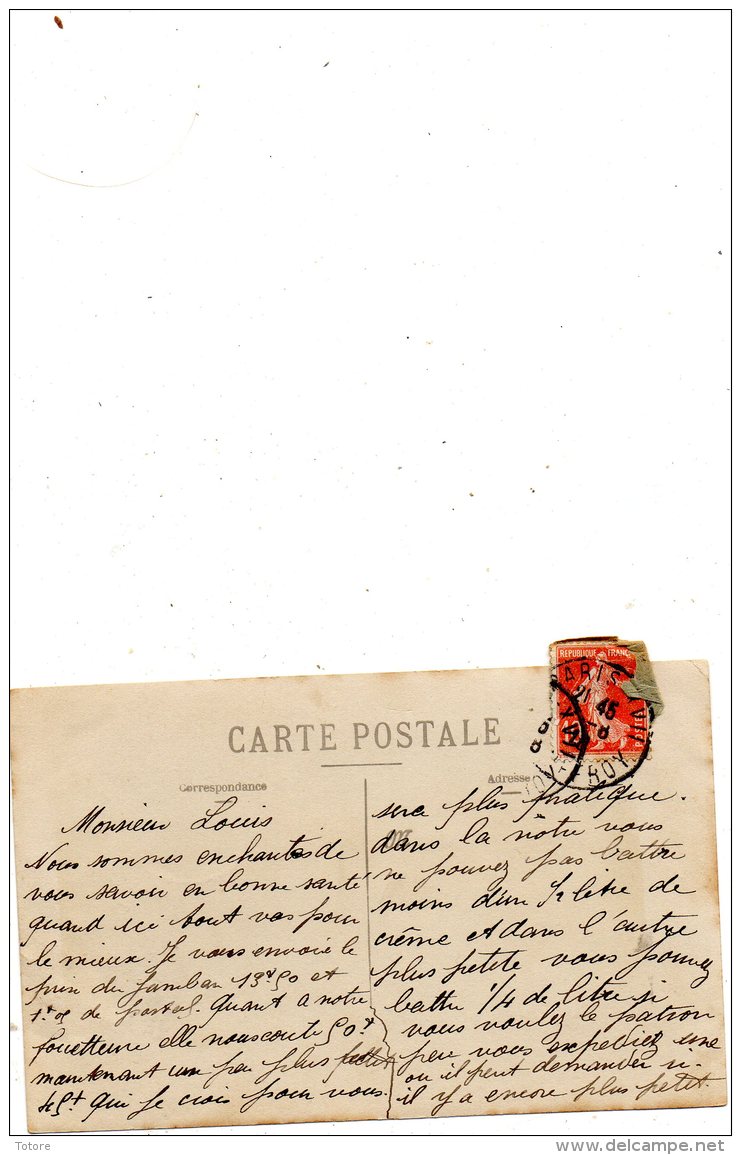 REPUBLIQUE FRANC
POSTES
PARIS
21 45
CARTE POSTALE
Correspondance
Adresse
Monsieur Louis
Nous sommes enchantés de
vous savoir en bonne santé
quand ici tout vas pour
le mieux. Je vous envoie le
prix du 13f50 et
de Quant a notre
fouetteuse elle nous coute 50f
maintenant un peu plus
45f qui je crois pour vous
sera plus pratique.
dans la nôtre vous
ne pouvez pas battre
moins d'un 1/2 litre de
crème et dans l'autre
plus petite vous pouvez
battre 1/4 de litre si
vous voulez le patron
peu vous expediez une
ou il peut demander si
il y a encore plus petit
Totore
www.delcampe.net